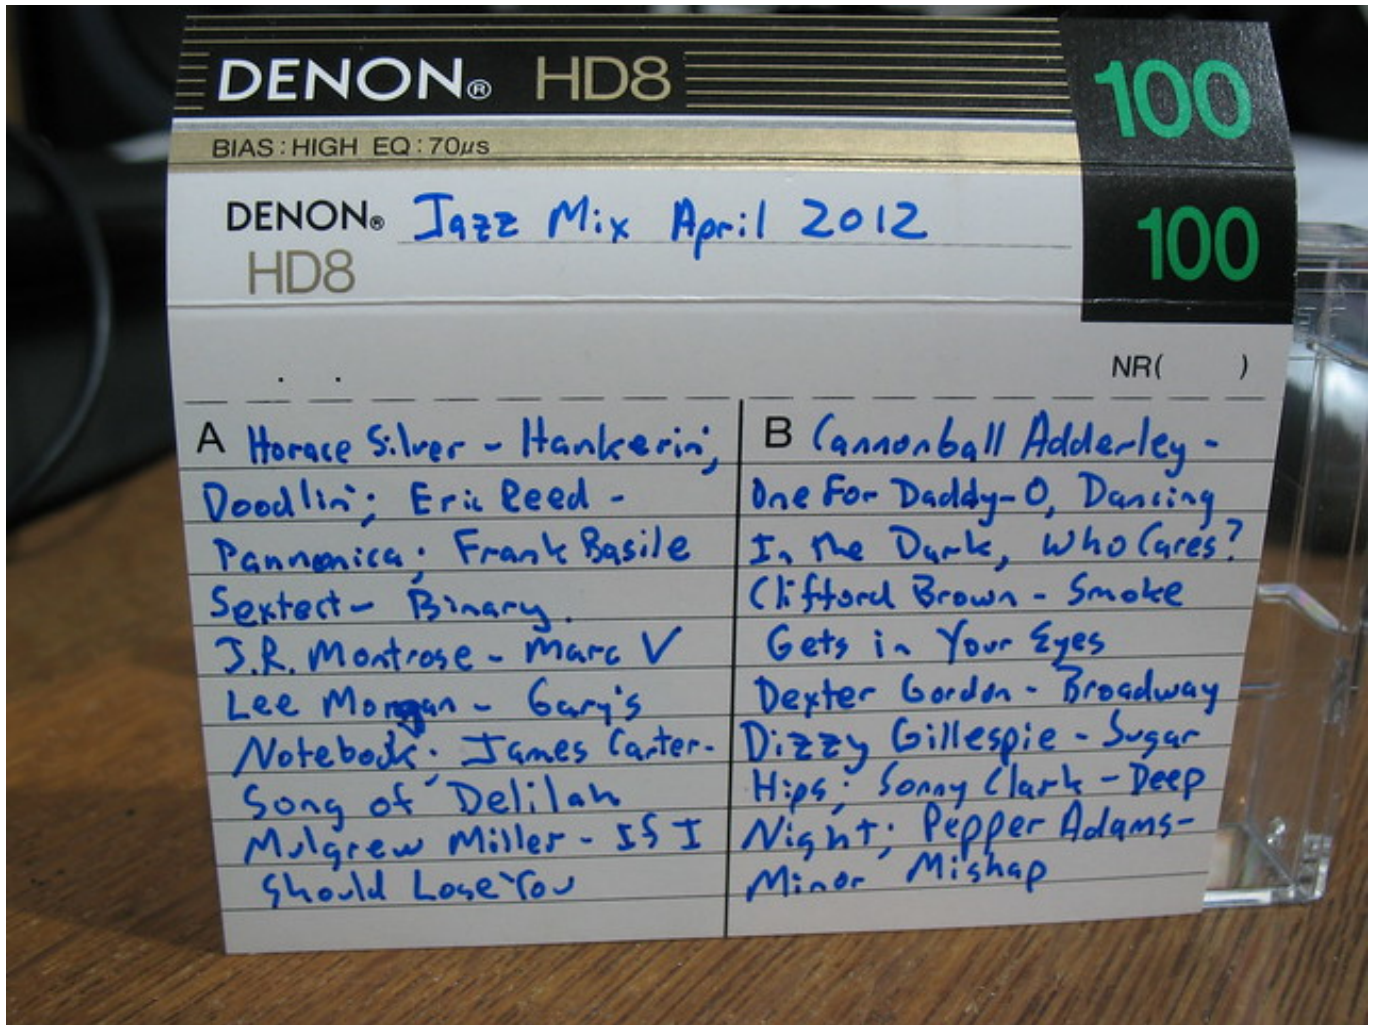 DENON® HD8 100
BIAS : HIGH EQ : 70μs
DENON® Jazz Mix April 2012 100
HD8
NR( )
A Horace Silver - Hankerin',
Doodlin'; Eric Reed -
Pannonica; Frank Basile
Sextect - Binary.
J.R. Montrose - Marc V
Lee Morgan - Gary's
Notebook; James Carter -
Song of Delilah
Mulgrew Miller - If I
Should Lose You
B Cannonball Adderley -
One For Daddy-O, Dancing
In the Dark, Who Cares?
Clifford Brown - Smoke
Gets in Your Eyes
Dexter Gordon - Broadway
Dizzy Gillespie - Sugar
Hips; Sonny Clark - Deep
Night; Pepper Adams -
Minor Mishap